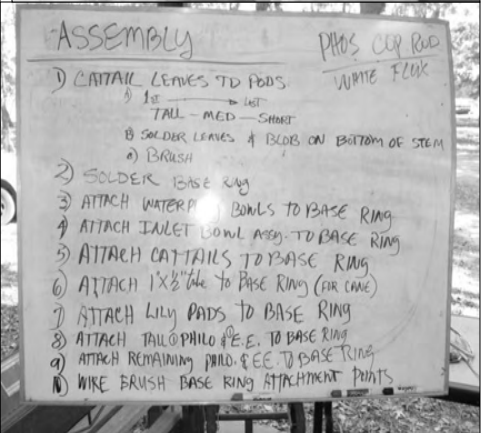 ASSEMBLY
PHOS COP ROD
WHITE FLUX
1) CATTAIL LEAVES TO PODS.
A) 1ST → LAST
TALL - MED - SHORT
B SOLDER LEAVES & BLOB ON BOTTOM OF STEM
a) BRUSH
2) SOLDER BASE RING
3) ATTACH BOWLS TO BASE RING
4) ATTACH INLET BOWL ASSY. TO BASE RING
5) ATTACH CATTAILS TO BASE RING
6) ATTACH 1"X½" tube to BASE RING (FOR CANE)
7) ATTACH LILY PADS to BASE RING
8) ATTACH TALL PHILO & E.E. TO BASE RING
9) ATTACH REMAINING PHILO. & EE. TO BASE RING
10) WIRE BRUSH BASE RING ATTACHMENT POINTS